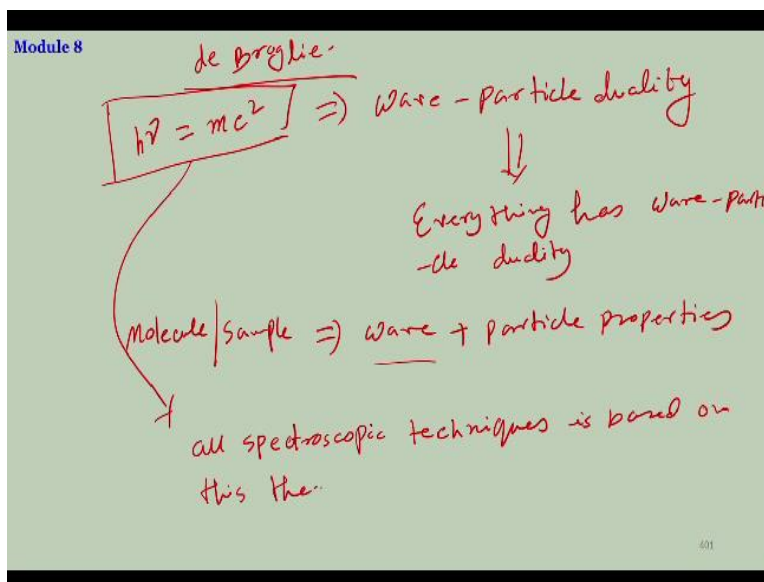 Module 8
de Broglie.
hν = mc² ⇒ wave-particle duality
⇓
Everything has wave-parti
-cle duality
Molecule/Sample ⇒ wave + particle properties
all spectroscopic techniques is based on
this the..
401